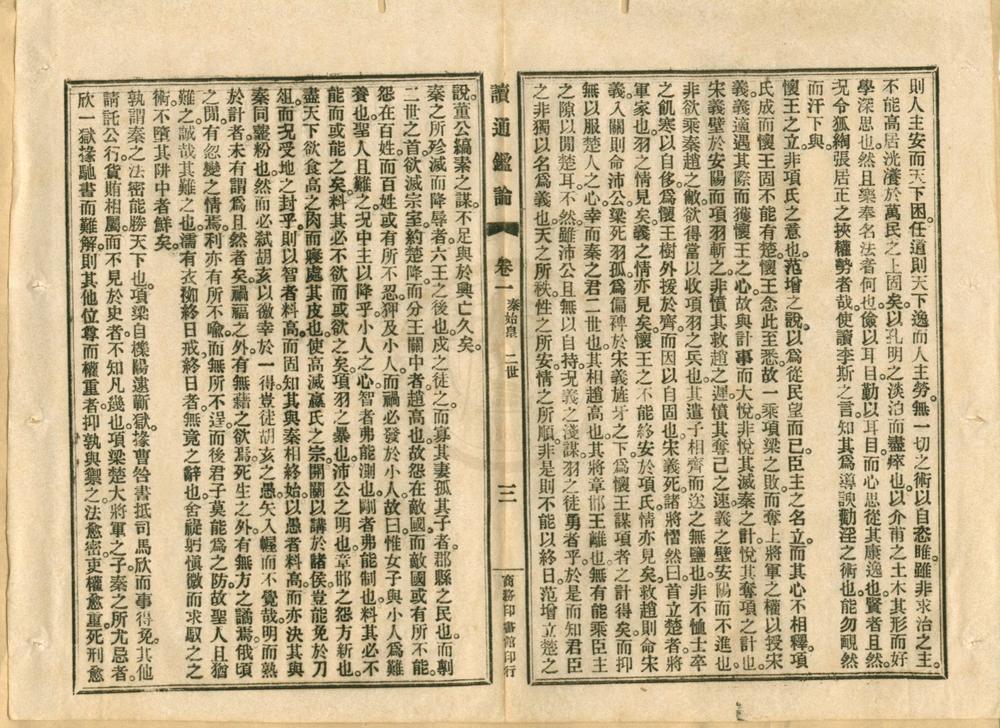 則人主安而天下困。任道則天下逸而人主勞。無一切之術以自恣睢。雖非求治之主
不能高居洸瀁於萬民之上固矣。以孔明之淡泊而盡瘁也。以介甫之土木其形而好
學深思也。然且樂奉名法者何也。儉以耳目勤以耳目而心思從其康逸也。賢者且然。
況令狐綯張居正之挾權勢者哉。使讀李斯之言知其爲導諛勸淫之術也。能勿靦然
而汗下與。
懷王之立非項氏之意也。范增之說以爲從民望而已。臣主之名立而其心不相釋。項
氏成而懷王固不能有楚。懷王念此至悉。故一乘項梁之敗而奪上將軍之權以授宋
義。義適遇其際而獲懷王之心。故與計事而大悅。非悅其滅秦之計。悅其奪項之計也
宋義壁於安陽而項羽斬之。非憤其救趙之遲。憤其奪己之速。義之壁安陽而不進也。
非欲乘秦趙之敝。欲得當以收項羽之兵也。其遣子相齊而送之無鹽也。非不恤士卒
之飢寒以自侈。爲懷王樹外援於齊而因以自固也。宋義死諸將慴然曰。首立楚者將
軍家也。羽之情見矣。義之情亦見矣。懷王之不能終安於項氏情亦見矣。救趙則命宋
義。入關則命沛公。梁死羽孤爲偏裨於宋義旌牙之下。爲懷王謀項者之計得矣。而抑
無以服楚人之心。幸而秦之君二世也。其相趙高也。其將章邯王離也。無有能乘臣主
之隙以閒楚耳。不然雖沛公且無以自持。況義之淺謀羽之徒勇者乎。於是而知君臣
之非獨以名爲義也。天之所秩性之所安情之所順。非是則不能以終日。范增立楚之
讀通鑑論 卷一 秦始皇 二世 三 商務印書館印行
說。董公縞素之謀。不足與於興亡久矣。
秦之所殄滅而降辱者六王之後也。戍之徒之而寡其妻孤其子者郡縣之民也。而剸
二世之首欲滅宗室約楚降。而分王關中者趙高也。故怨在敵國而敵國或有所不能。
怨在百姓而百姓或有所不忍。狎及小人而禍必發於小人。故曰惟女子與小人爲難
養也。聖人且難之。況中主以降乎。小人之心智者弗能測也。剛者弗能制也。料其必不
能而或能之矣。料其必不欲而或欲之矣。項羽之暴也。沛公之明也。章邯之怨方新也。
盡天下欲食高之肉而寢處其皮也。使高滅嬴氏之宗。開關以講於諸侯。豈能免於刀
俎而況受地之封乎。則以智者料高。而固知其與秦相終始。以愚者料高而亦決其與
秦同虀粉也。然而必弒胡亥以徼幸於一得。豈徒胡亥之愚矢入幄而不覺哉。明而熟
於計者未有謂爲且然者矣。禍福之外有無藉之欲焉。死生之外有無方之譎焉。俄頃
之閒有忽變之情焉。利亦有所不喻而無所不逞。而後君子莫能爲之防。故聖人且猶
難之。誠哉其難之也。濡有衣袽終日戒。終日者無竟之辭也。舍褆躬愼徽而求馭之之
術。不墮其阱中者鮮矣。
孰謂秦之法密能勝天下也。項梁自櫟陽逮蘄獄掾曹咎書抵司馬欣而事得免。其他
請託公行貨賄相屬而不見於史者不知凡幾也。項梁楚大將軍之子。秦之所尤忌者。
欣一獄掾馳書而難解。則其他位尊而權重者抑孰與禦之。法愈密吏權愈重。死刑愈